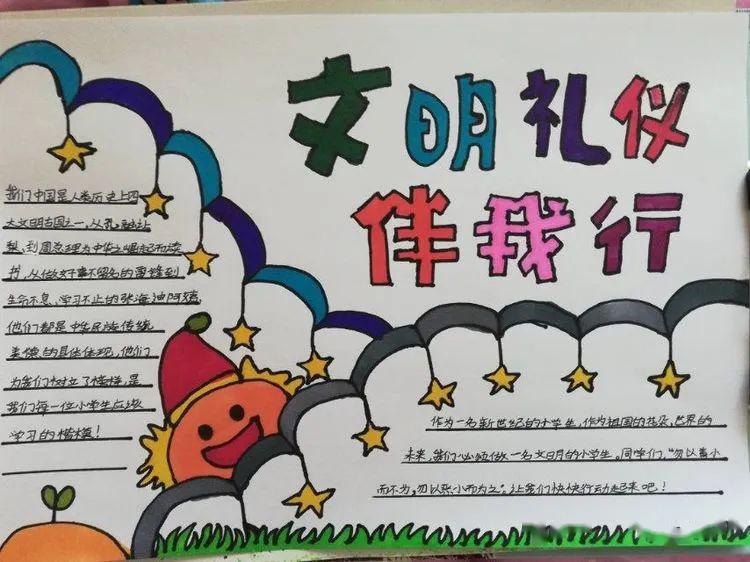 文明礼仪
伴我行
我们中国是人类历史上四
大文明古国之一，从孔融让
梨，到周总理为中华之崛起而读
书，从做好事不留名的雷锋到
生命不息、学习不止的张海迪阿姨，
他们都是中华民族传统
美德的具体体现，他们
为我们树立了榜样，是
我们每一位小学生应该
学习的楷模！
作为一名新世纪的小学生，作为祖国的花朵、世界的
未来，我们必须做一名文明的小学生。同学们，“勿以善小
而不为，勿以恶小而为之”，让我们快快行动起来吧！